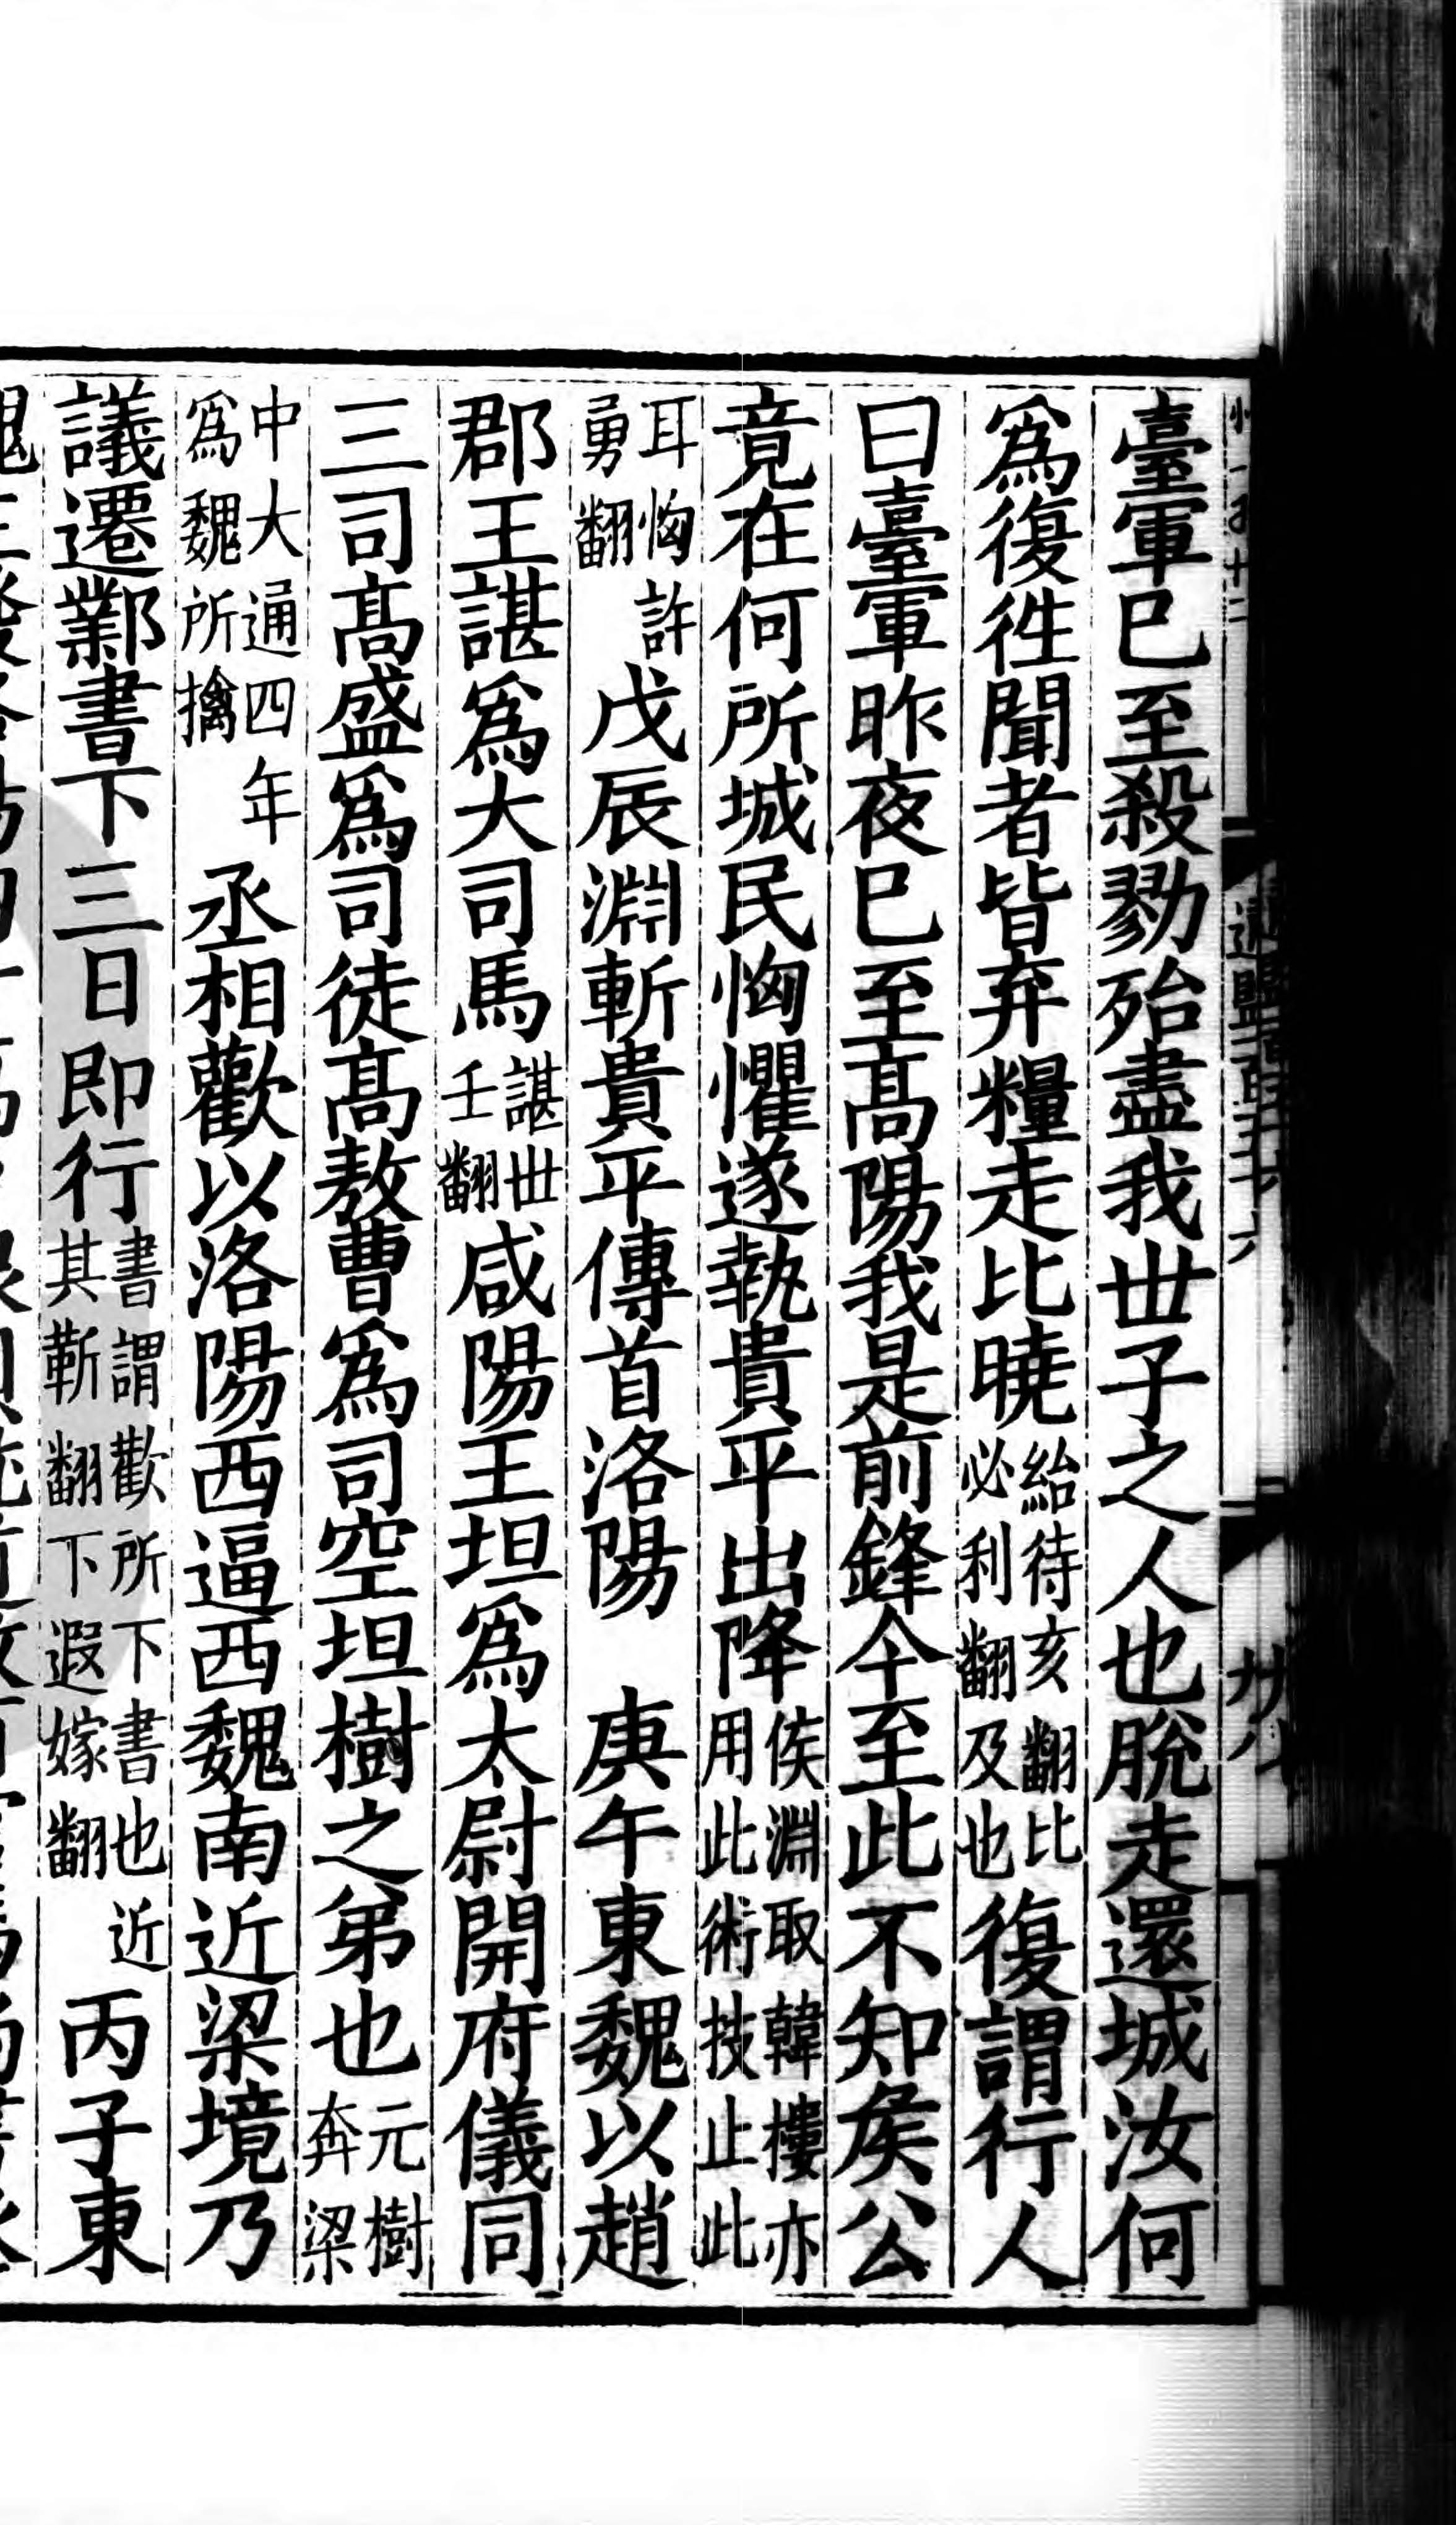 臺軍已至殺勠殆盡我世子之人也脫走還城汝何
爲復徃聞者皆弃糧走比曉紿待亥翻比必利翻及也復謂行人
曰臺軍昨夜已至高陽我是前鋒今至此不知矦公
竟在何所城民忷懼遂執貴平出降矦淵取韓樓亦用此術技止此
耳忷許勇翻戊辰淵斬貴平傳首洛陽 庚午東魏以趙
郡王諶爲大司馬諶世壬翻咸陽王坦爲太尉開府儀同
三司髙盛爲司徒髙敖曹爲司空坦樹之弟也元樹奔梁
中大通四年爲魏所擒丞相歡以洛陽西逼西魏南近梁境乃
議遷鄴書下三日即行書謂歡所下書也近其靳翻下遐嫁翻丙子東